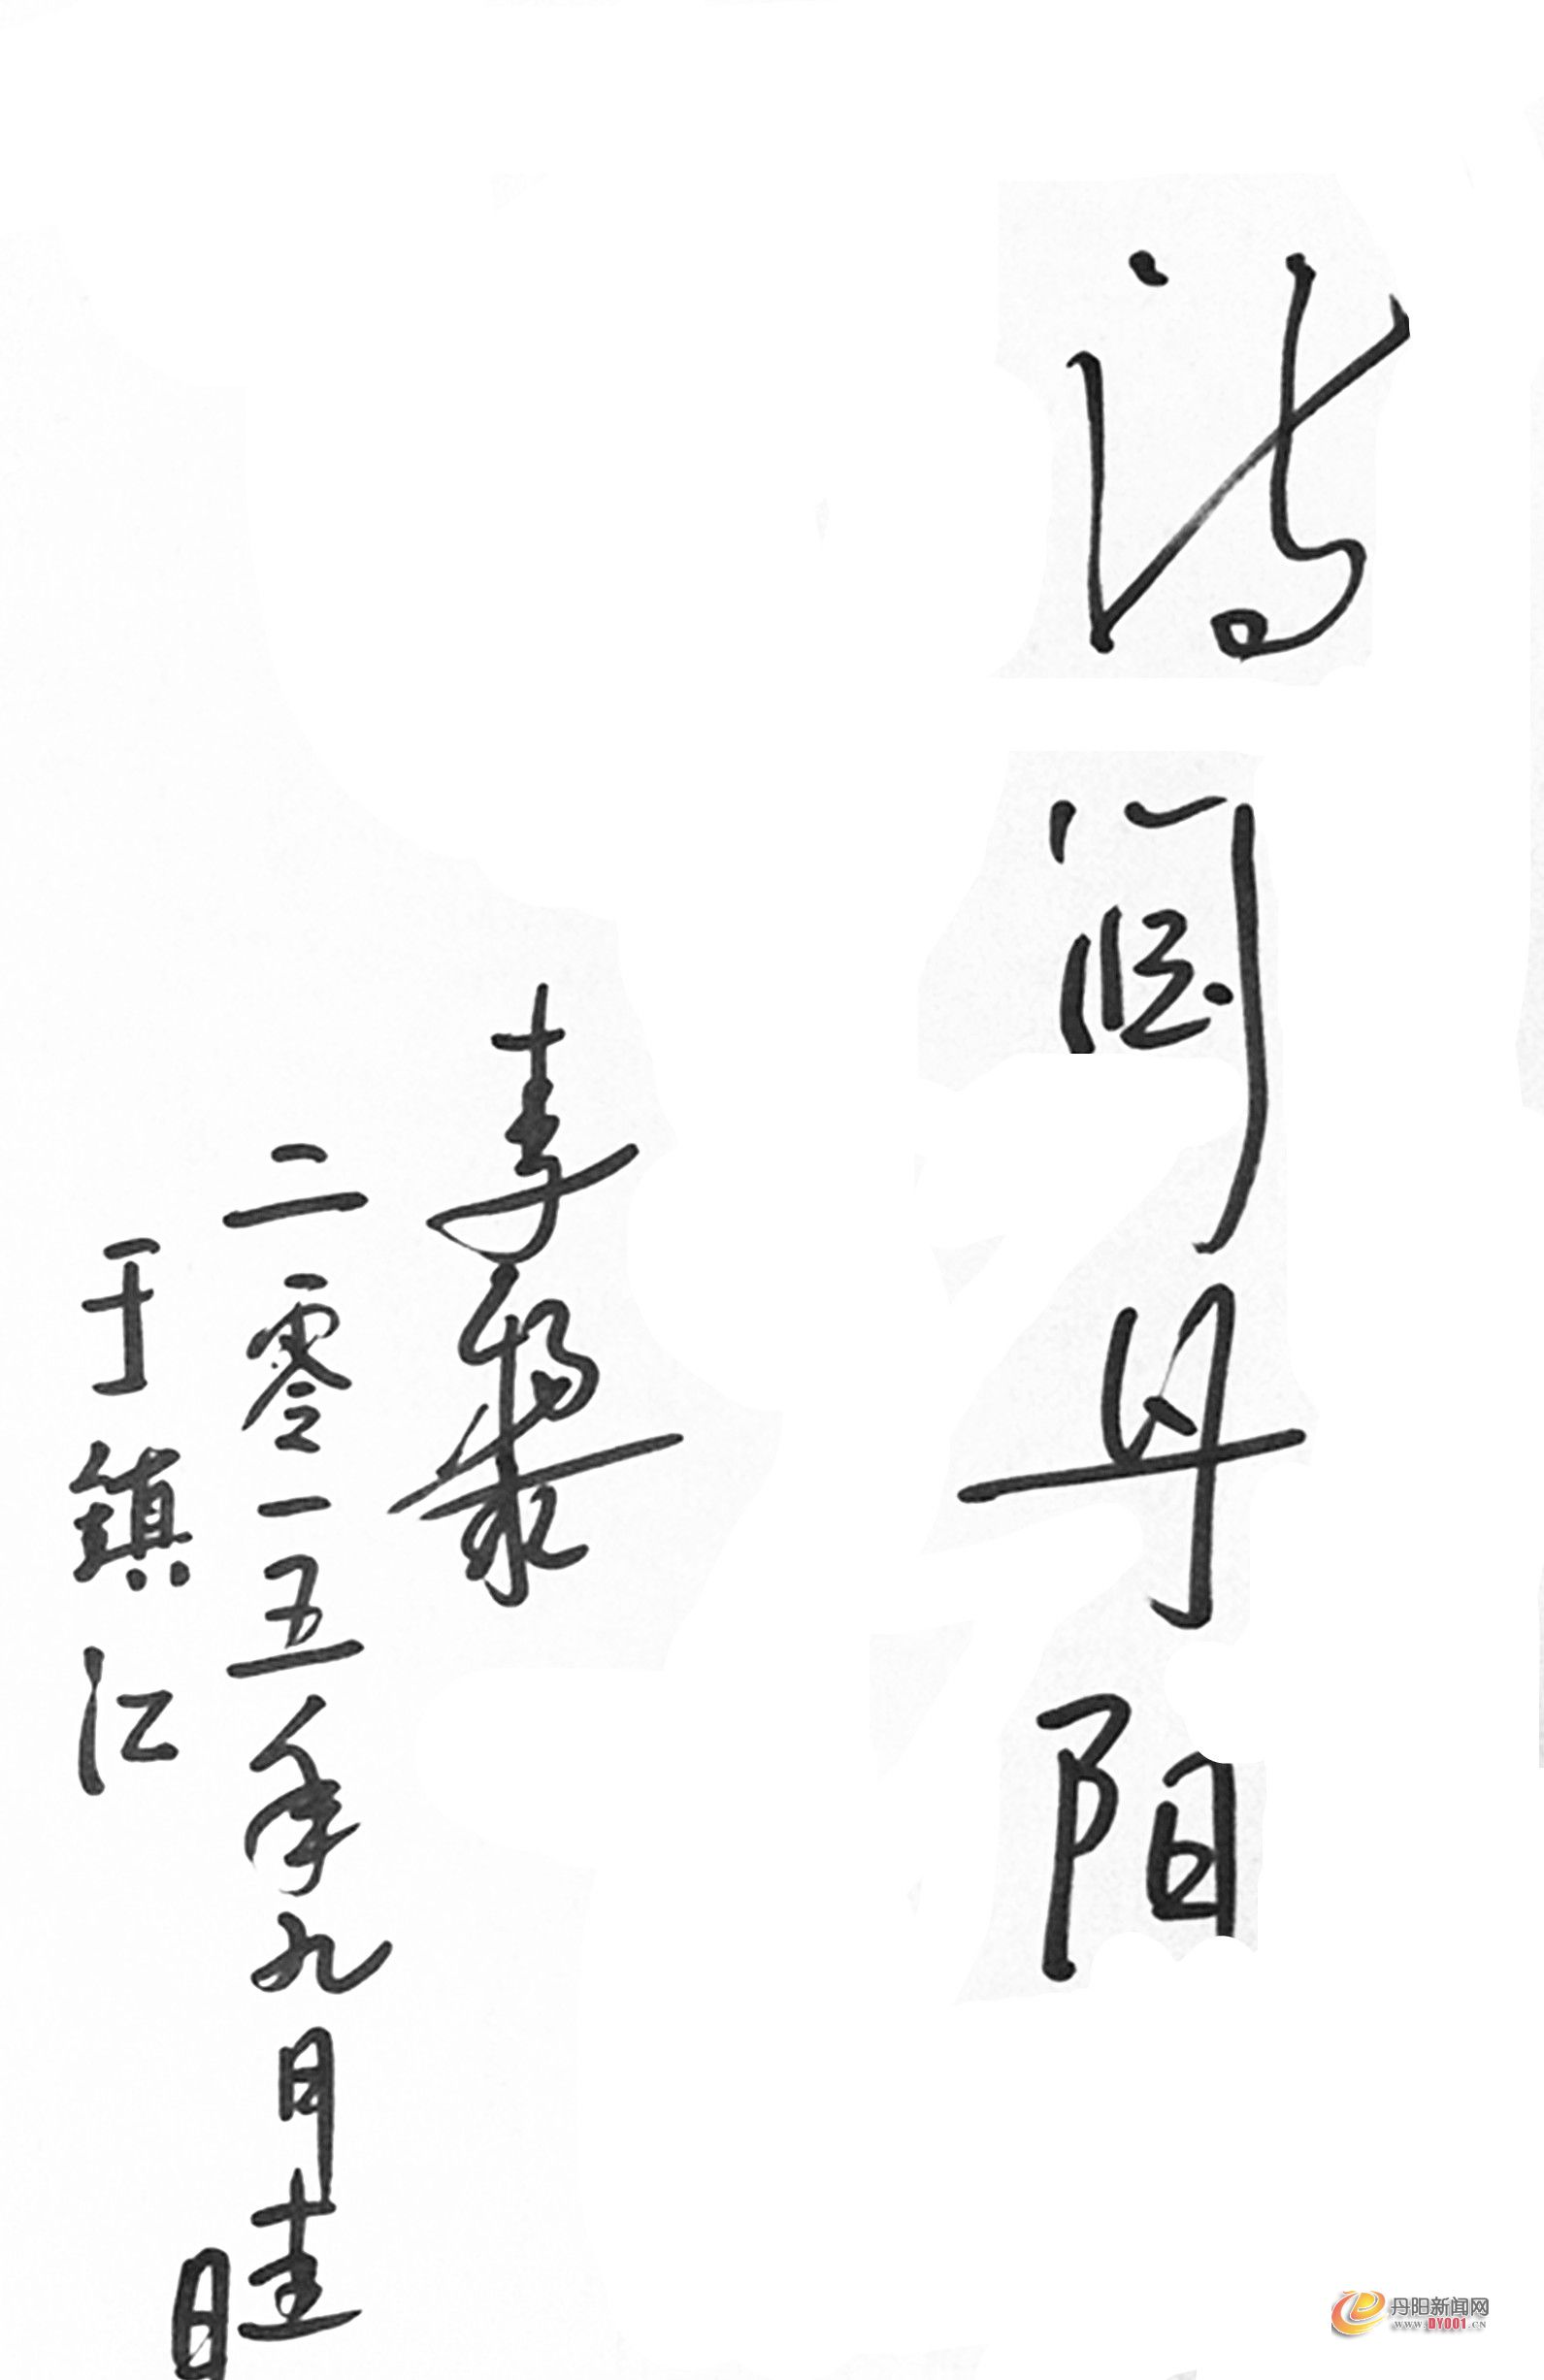 诗润丹阳
李
二零一五年九月十五日
于鎮江
丹阳新闻网
WWW.DY001.CN